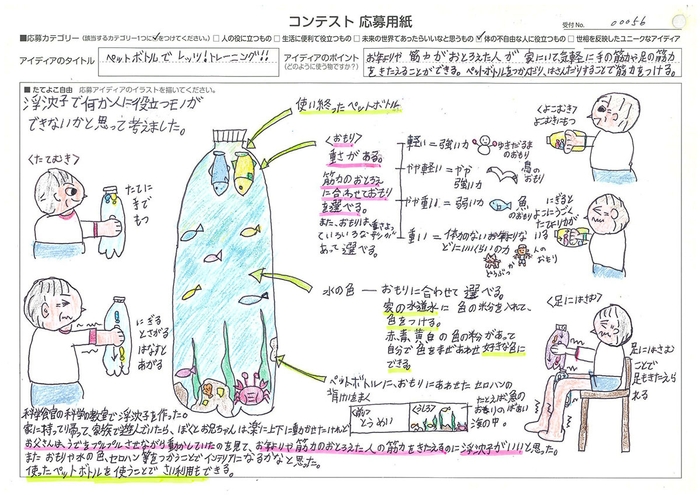 コンテスト 応募用紙
受付No. 00056
■応募カテゴリー(該当するカテゴリー1つに✓をつけてください。) □人の役に立つもの □生活に便利で役立つもの □未来の世界であったらいいなと思うもの ☑体の不自由な人に役立つもの □世相を反映したユニークなアイディア
アイディアのタイトル
ペットボトルでレッツ!トレーニング!!
アイディアのポイント
(どのように使う物ですか?)
お年よりや筋力がおとろえた人が家にいて気軽に手の筋力や足の筋力
をきたえることができる。ペットボトルをつかんだり、はさんだりすることで筋力をつける。
■たてよこ自由 応募アイディアのイラストを描いてください。
浮沈子で何か人に役立つモノが
できないかと思って考えました。
使い終ったペットボトル
<たてむき>
たてに
手で
もつ
にぎる
とさがる
はなすと
あがる
<おもり>
重さがある。
筋力のおとろえ
に合わせておもり
を選べる。
また、おもりは、重さによ
っていろいろなデザインが
あって選べる。
軽い=強い力
ゆきだるま
のおもり
やや軽い=やや
強い力
鳥の
おもり
やや重い=弱い力
魚
のおもり
重い=体力のないお年よりな
どにいいくらいの力
どうぶつ
人の
おもり
<よこむき>
よこむきにもつ
にぎると
よこにうごく
たてより力が
いる
水の色―おもりに合わせて選べる。
家の水道水に色の粉を入れて、
色をつける。
赤青黄白の色の粉があって
自分で色をまぜあわせ好きな色に
できる
<足にはさむ>
足にはさむ
ことで
足もきたえら
れる
ペットボトルに、おもりにあわせたセロハンの
背けいをまく
<前>
とうめい
<うしろ>
たとえば魚の
おもりのばあい
海の中。
科学食官の科学教室で浮沈子を作った。
家に持って帰って、家族で遊んでいたら、ぼくとお兄ちゃんは楽に上下に動かせたけれど
お父さんは、うでをプルプルさせながら動かしていたのを見て、お年よりや筋力のおとろえた人の筋力をきたえるのに浮沈子がいいと思った。
また おもりや水の色、セロハン等をつかうことでインテリアになるかなと思った。
使ったペットボトルを使うことでさい利用もできる。